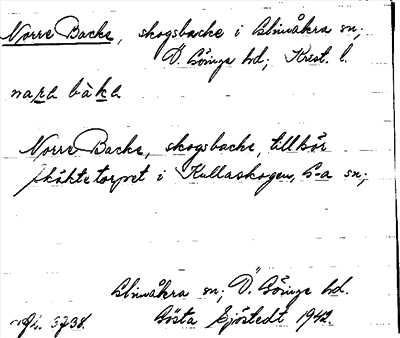 Norre Backe, skogsbacke i Glimåkra sn;
Ö. Göinge hd; Krist. l.
nara bàka
Norre Backe, skogsbacke, tillhör
Skättetorpet i Kullaskogen, G-a sn;
Glimåkra sn; Ö. Göinge hd.
Gösta Sjöstedt 1942.